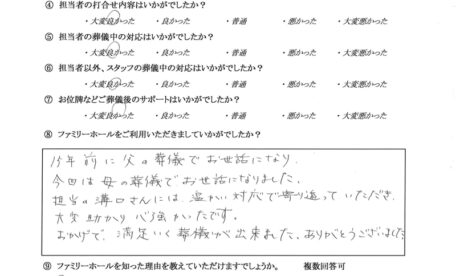 ④ 担当者の打合せ内容はいかがでしたか？
・大変良かった ・良かった ・普通 ・悪かった ・大変悪かった
⑤ 担当者の葬儀中の対応はいかがでしたか？
・大変良かった ・良かった ・普通 ・悪かった ・大変悪かった
⑥ 担当者以外、スタッフの葬儀中の対応はいかがでしたか？
・大変良かった ・良かった ・普通 ・悪かった ・大変悪かった
⑦ お位牌などご葬儀後のサポートはいかがでしたか？
・大変良かった ・良かった ・普通 ・悪かった ・大変悪かった
⑧ ファミリーホールをご利用いただきましていかがでしたか？
15年前に父の葬儀でお世話になり、
今回は母の葬儀でお世話になりました。
担当の溝口さんには温かい対応で寄り添っていただき、
大変助かり心強かったです。
おかげで、満足いく葬儀が出来ました。ありがとうございました
⑨ ファミリーホールを知った理由を教えていただけますでしょうか。 複数回答可